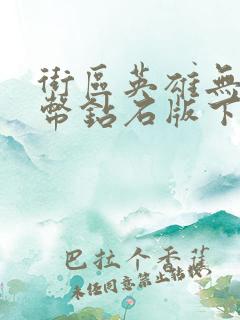 街區英雄無
幣鈷石版下
巴拉个香蕉
未经同意禁止转载